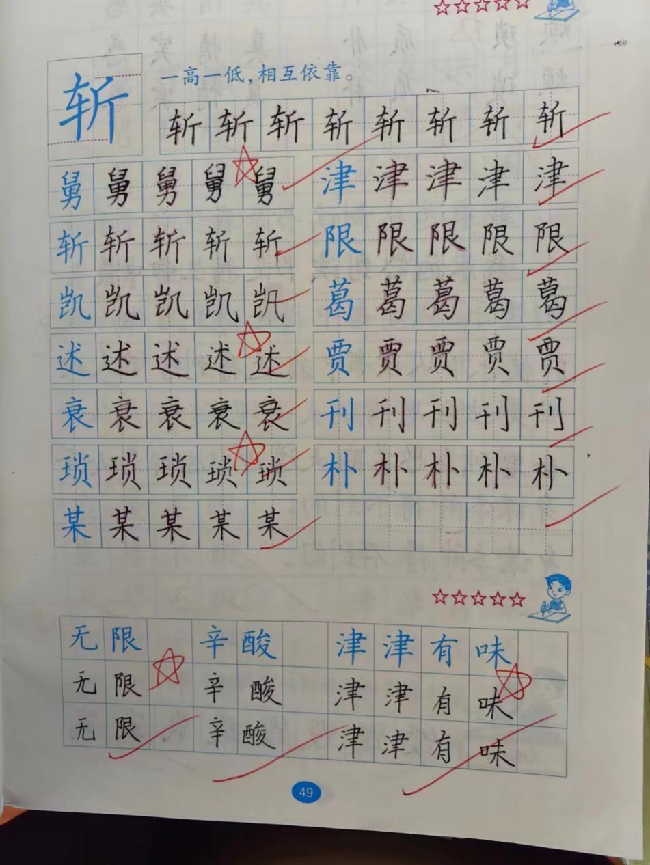 一高一低，相互依靠。
斩 斩 斩 斩 斩 斩 斩 斩 斩
舅 舅 舅 舅 舅 津 津 津 津 津
斩 斩 斩 斩 斩 限 限 限 限 限
凯 凯 凯 凯 凯 葛 葛 葛 葛 葛
述 述 述 述 述 贾 贾 贾 贾 贾
衰 衰 衰 衰 衰 刊 刊 刊 刊 刊
琐 琐 琐 琐 琐 朴 朴 朴 朴 朴
某 某 某 某 某
无 限 辛 酸 津 津 有 味
无 限 辛 酸 津 津 有 味
无 限 辛 酸 津 津 有 味
49